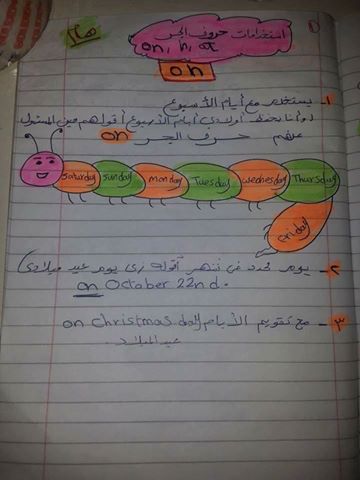 هام
استخدامات حروف الجر
on, in, at
on
١- يستخدم مع أيام الأسبوع
لو أنا بحفظ أولادى أيام الأسبوع أقولهم مين المسئول
عنهم حرف الجر on
Saturday Sunday monday Tuesday Wednesday Thursday
Friday
٢- يوم محدد فى شهر أقوله زى يوم عيد ميلادى
on October 22nd.
٣- مع تقويم الأيام on Christmas day
عيد الميلاد